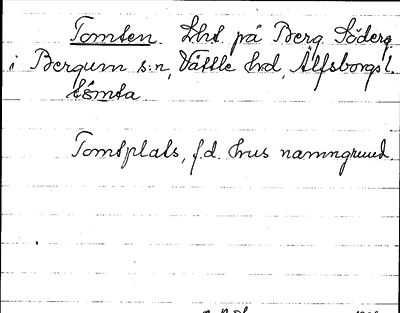 Tomten. Lht. på Berg Söderg.
i Bergum s:n, Vättle hd, Älfsborgs l.
tómta
Tomtplats, f.d. hus namngrund.